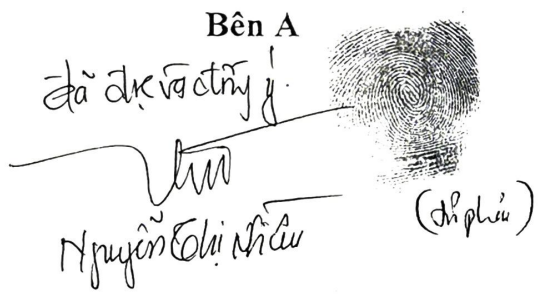 Bên A
Đã đọc và đồng ý.
Nguyễn Thị Nhiều